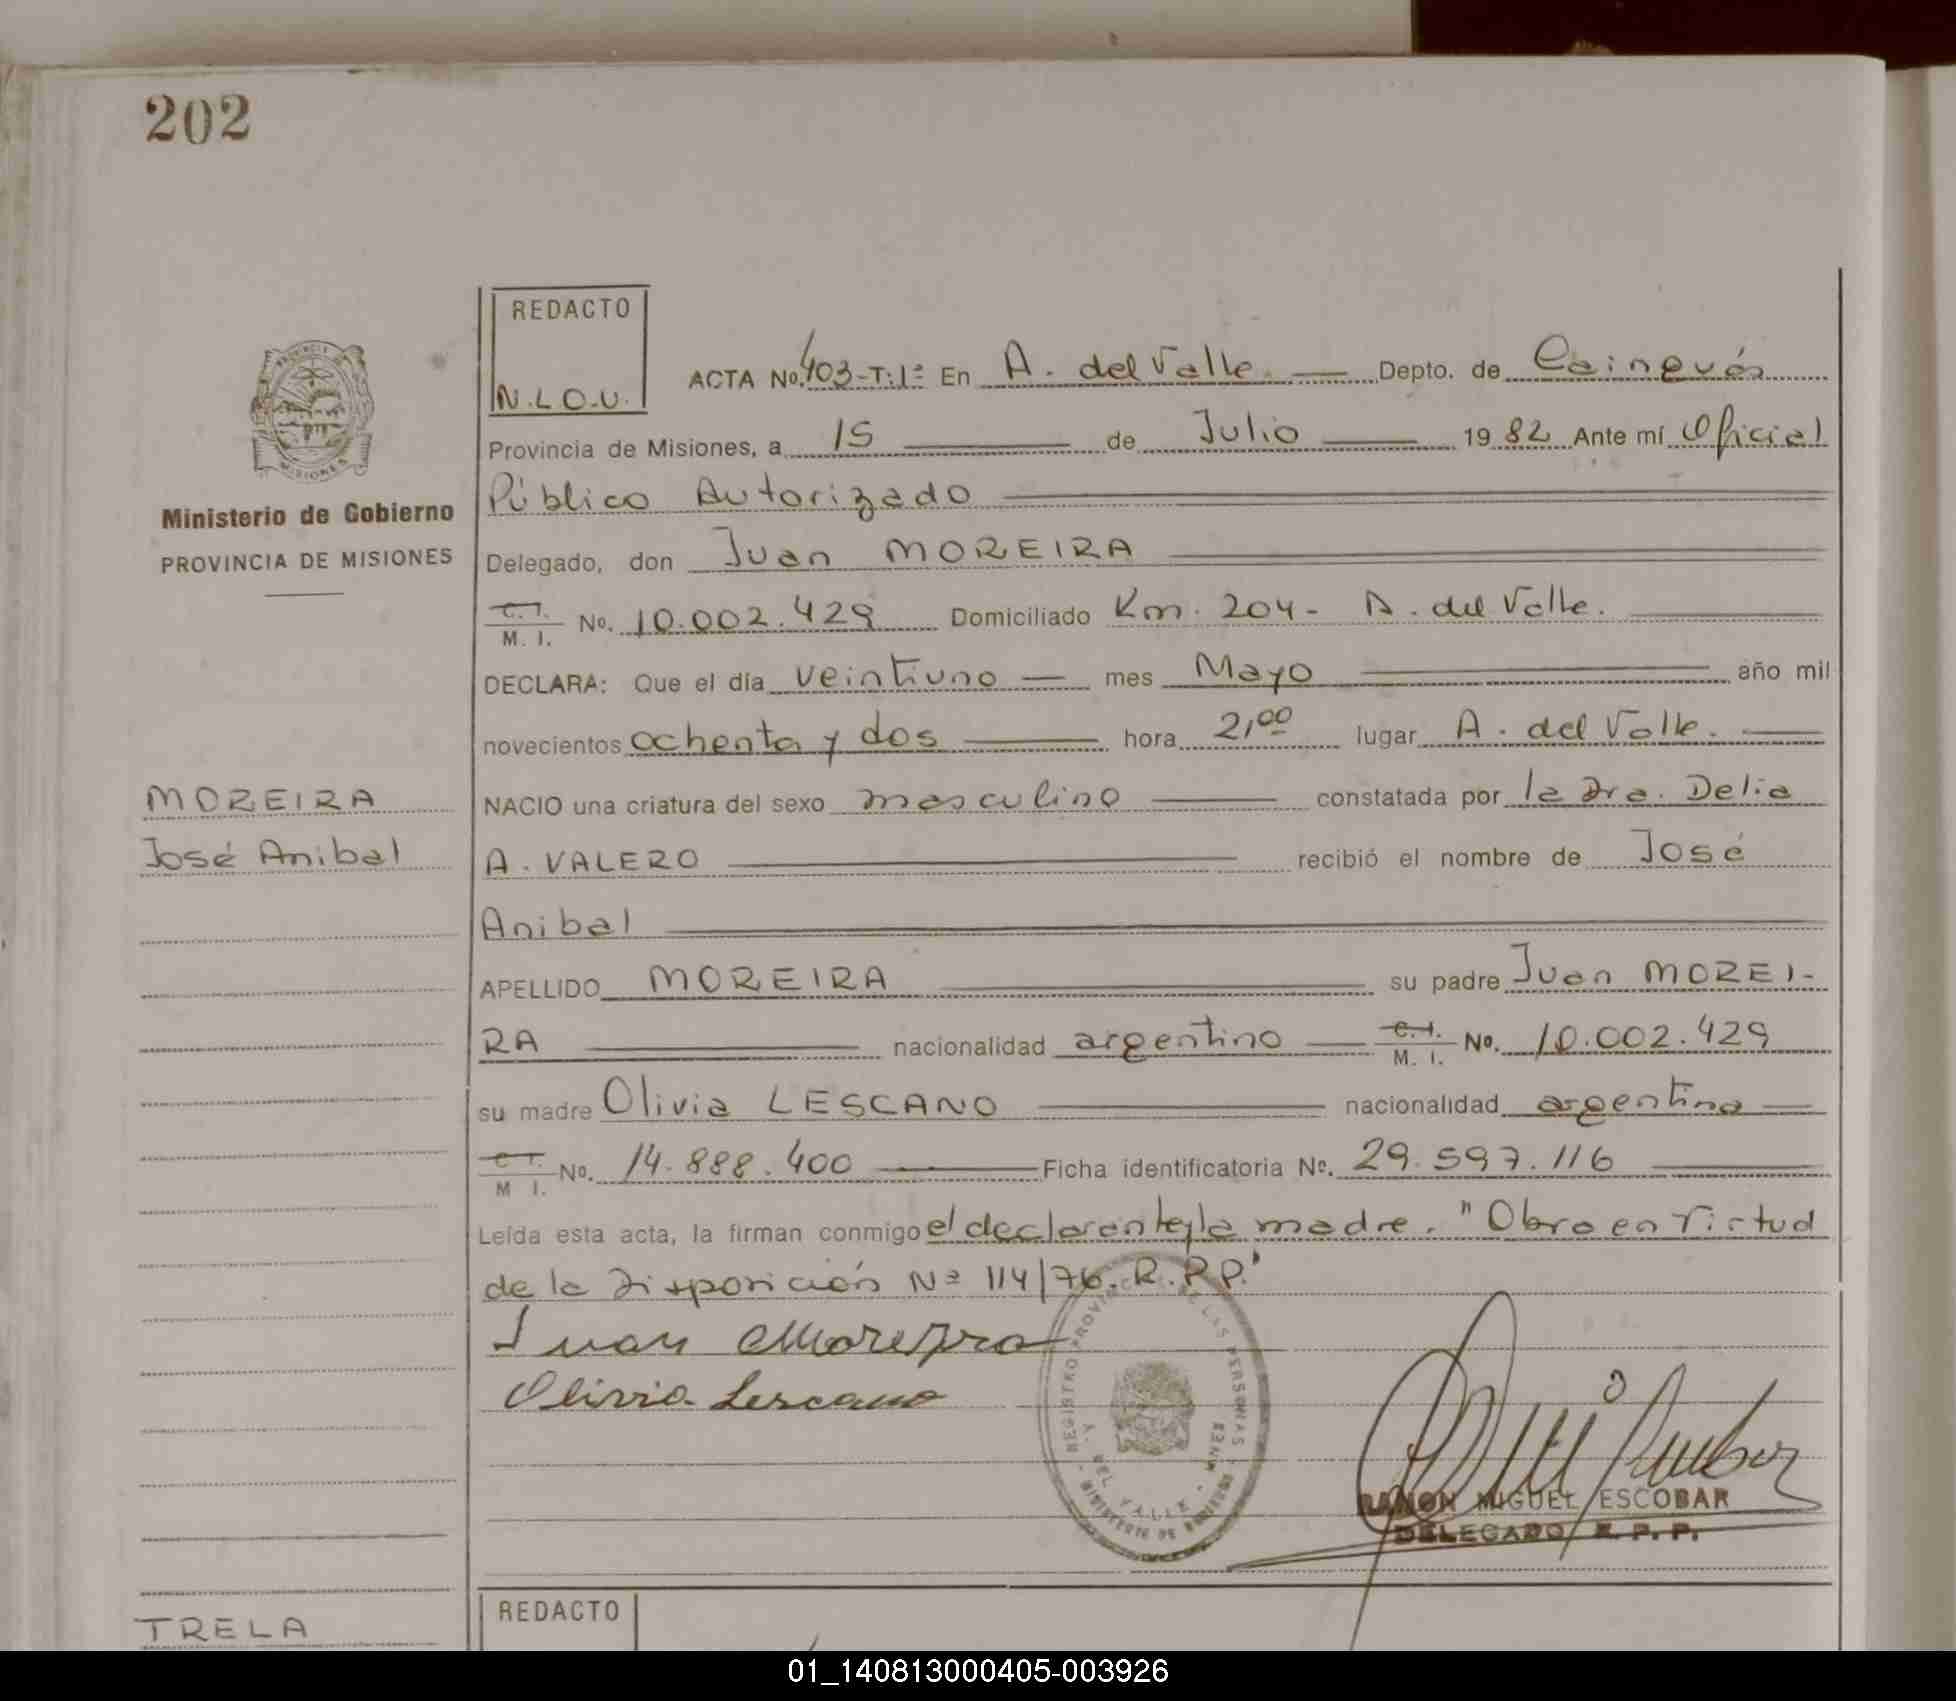 202
REDACTO
N.L.O.U.
ACTA No. 403-T:1º En A. del Valle Depto. de Cainguás
Provincia de Misiones, a 15 de Julio 1982 Ante mí Oficial
Público Autorizado
Ministerio de Gobierno
PROVINCIA DE MISIONES
Delegado, don Juan MOREIRA
C.I. M. I. No. 10.002.429 Domiciliado Km. 204- A. del Valle.
DECLARA: Que el día veintiuno mes Mayo año mil
novecientos ochenta y dos hora 21,00 lugar A. del Valle.
MOREIRA
José Anibal
NACIO una criatura del sexo masculino constatada por la Dra. Delia
A. VALERO recibió el nombre de José
Anibal
APELLIDO MOREIRA su padre Juan MOREI-
RA nacionalidad argentino C.I. M. I. No. 10.002.429
su madre Olivia LESCANO nacionalidad argentina
C I. M I. No. 14.888.400 Ficha identificatoria No. 29.597.116
Leída esta acta, la firman conmigo el declarante y la madre. "Obro en Virtud
de la Disposición Nº 114/76. R.P.P."
Juan Moreyra
Olivia Lescano
REGISTRO PROVINCIAL DE LAS PERSONAS
A. DEL VALLE - MNES
MINISTERIO DE GOBIERNO
RAMON MIGUEL ESCOBAR
DELEGADO R. P. P.
REDACTO
TRELA
01_140813000405-003926